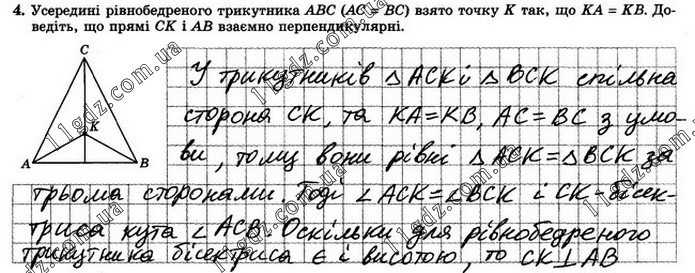 4. Усередині рівнобедреного трикутника ABC (AC = BC) взято точку K так, що KA = KB. До-
ведіть, що прямі CK і AB взаємно перпендикулярні.
C
K
A
B
У трикутників △ ACK і △ BCK спільна
сторона CK, та KA=KB, AC=BC з умо-
ви, тому вони рівні △ ACK=△BCK за
трьома сторонами. Тоді ∠ACK=∠BCK і CK-бісек-
триса кута ∠ACB. Оскільки для рівнобедреного
трикутника бісектриса є і висотою, то CK⊥AB
11gdz.com.ua